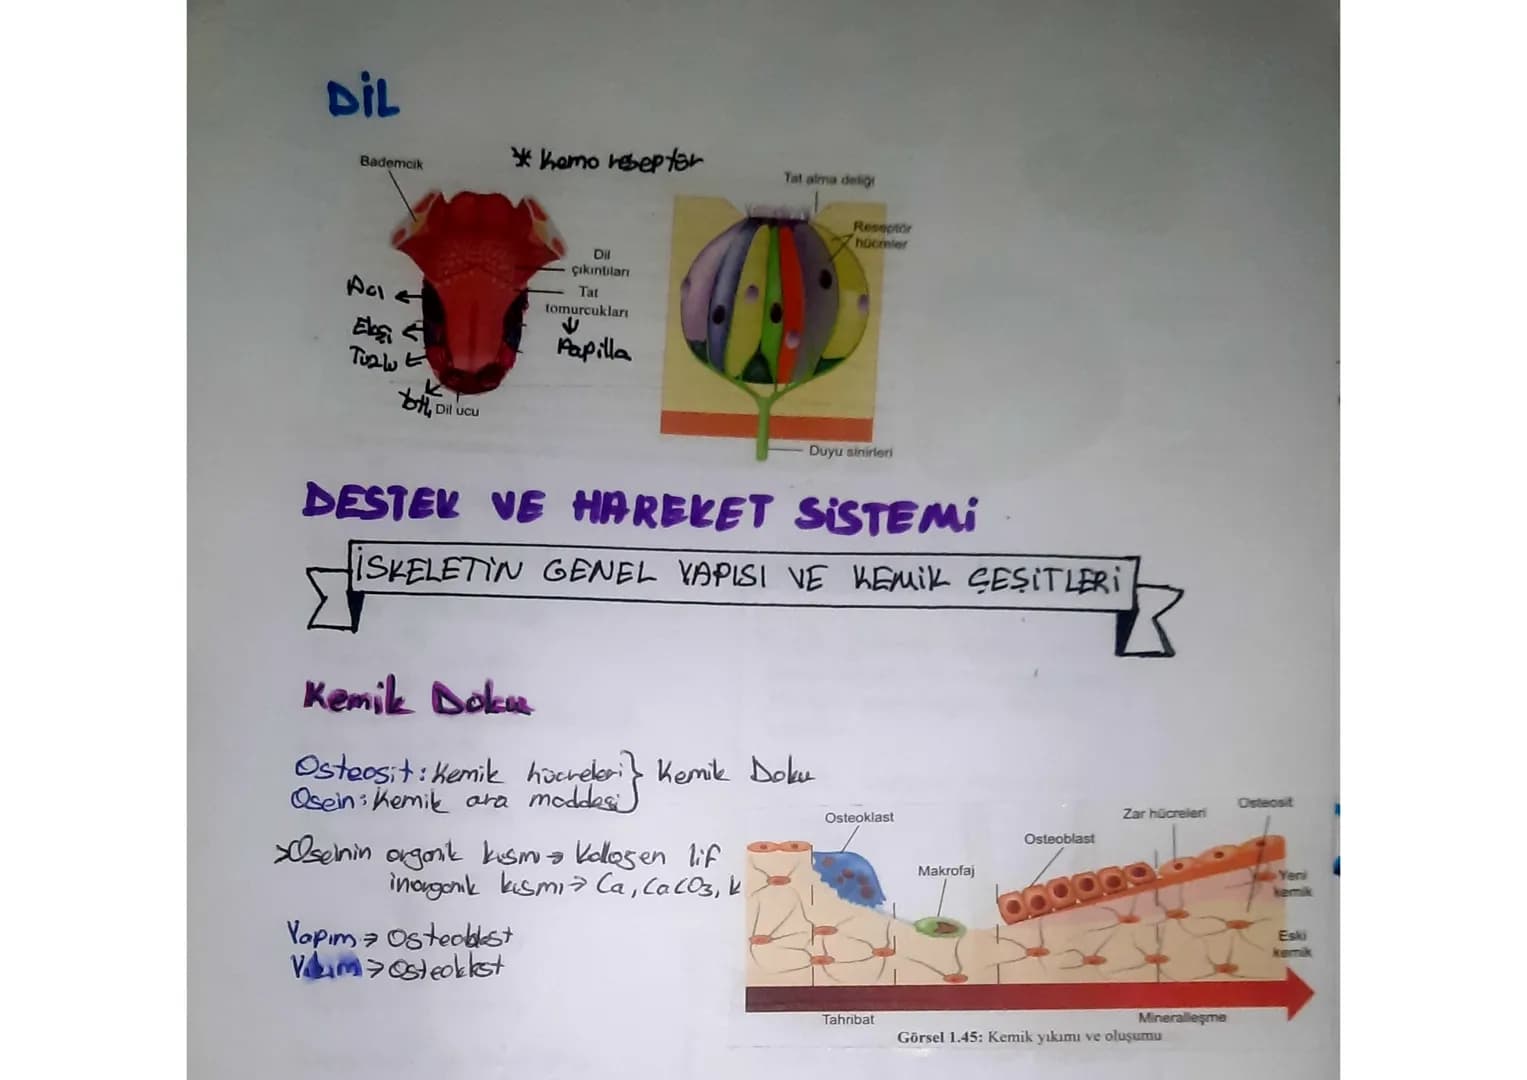 DİL
Bademcik
* Kemo reseptör
Tat alma deliği
Reseptör
hücreler
Dil
çıkıntıları
Tat
tomurcukları
Papilla
Acı
Ekşi
Tuzlu
Tatlı
Dil ucu
Duyu sinirleri
DESTEK VE HAREKET SİSTEMİ
İSKELETİN GENEL YAPISI VE KEMİK ÇEŞİTLERİ
Kemik Doku
Osteosit: Kemik hücreleri} Kemik Doku
Osein: Kemik ara maddesi
>Oseinin organik kısmı → Kollagen lif
inorganik kısmı → Ca, CaCO3, K
Yapım → Osteoblast
Yıkım → Osteoklast
Osteoklast
Makrofaj
Osteoblast
Zar hücreleri
Osteosit
Yeni
kemik
Eski
kemik
Tahribat
Mineralleşme
Görsel 1.45: Kemik yıkımı ve oluşumu